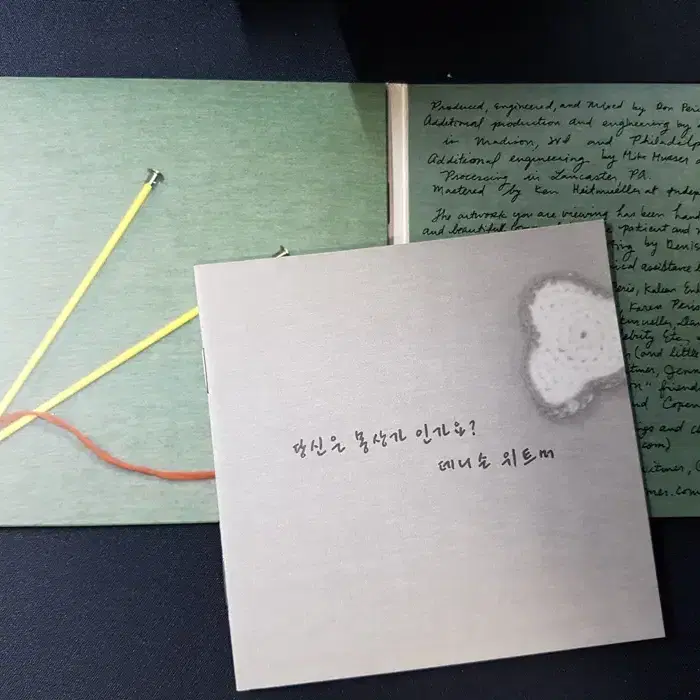 Produced, Engineered, and Mixed by Don Peri
Additional production and engineering by
in Madison, WI and Philadelp
Additional engineering by Mike Musser
Processing in Lancaster PA.
Mastered by Ken Heitmueller at Indep
The artwork you are viewing has been hand
and beautiful patient and
ing by Denis
ical assistance
eris, Kalean En
, Karen Peris
lebrity Etc,
(and little
itmer, Jenn
on" friend
nd Copen
ngs and c
com)
itmer,
mer.com
당신은 몽상가 인가요?
데니슨 위트머